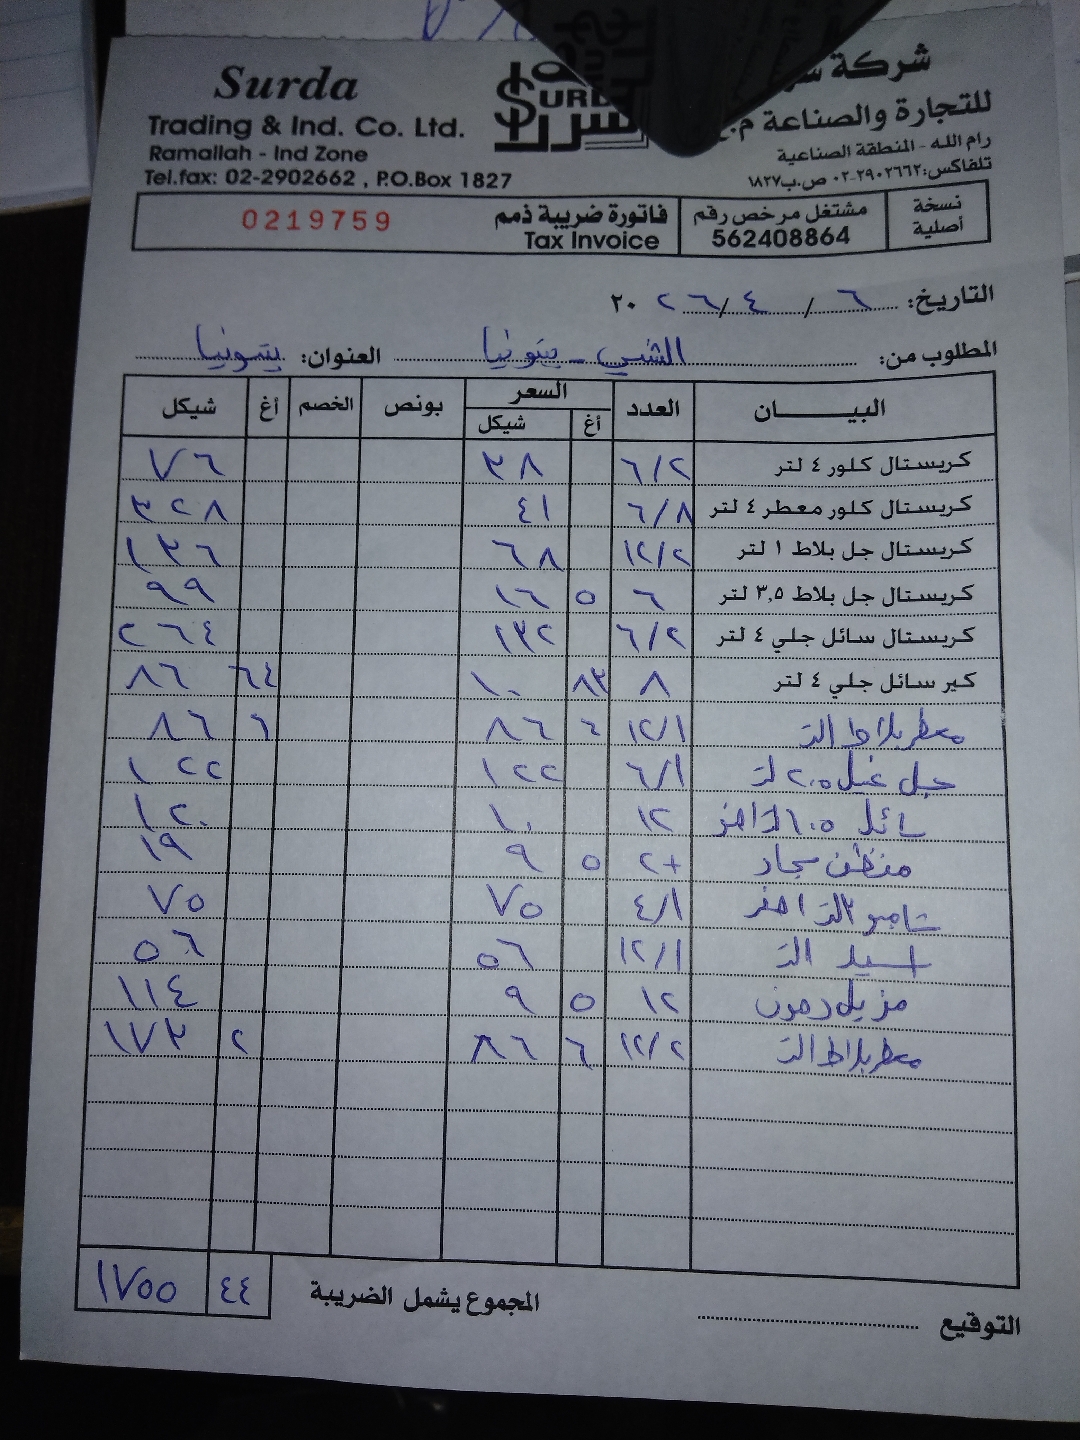 Surda
Trading & Ind. Co. Ltd.
Ramallah - Ind Zone
Tel.fax: 02-2902662 , P.O.Box 1827
شركة
للتجارة والصناعة
رام الله - المنطقة الصناعية
تلفاكس: ٢٩٠٢٦٦٢-٠٢ ص.ب ١٨٢٧
نسخة أصلية مشتغل مرخص رقم 562408864 فاتورة ضريبة ذمم Tax Invoice 0219759
التاريخ: ٦ / ٤ / ٢٠٢٦
المطلوب من: بيتونيا العنوان: بيتونيا
البيـــــان العدد السعر أغ شيكل بونص الخصم أغ شيكل
كريستال كلور ٤ لتر ٦/٢ ٣٨ ٧٦
كريستال كلور معطر ٤ لتر ٦/٨ ٤١ ٣٢٨
كريستال جل بلاط ١ لتر ١٢/٢ ٦٨ ١٣٦
كريستال جل بلاط ٣,٥ لتر ٦ ٥ ١٦ ٩٩
كريستال سائل جلي ٤ لتر ٦/٢ ١٣٢ ٢٦٤
كير سائل جلي ٤ لتر ٨ ٨٣ ١٠ ٦٤ ٨٦
معطر بلاط ١لتر ١٢/١ ٤ ٨٦ ٦ ٨٦
جل غسيل ٢.٥ لتر ٦/١ ١٢٢ ١٢٢
سائل ١٢ ١٠ ١٢٠
منظف سجاد ٢+ ٥ ٩ ١٩
شامبو ٤/١ ٧٥ ٧٥
اسيد ١لتر ١٢/١ ٥٦ ٥٦
مزيل دهون ١٢ ٥ ٩ ١١٤
معطر بلاط ١لتر ١٢/٢ ٦ ٨٦ ٢ ١٧٣
المجموع يشمل الضريبة ٤٤ ١٧٥٥
التوقيع